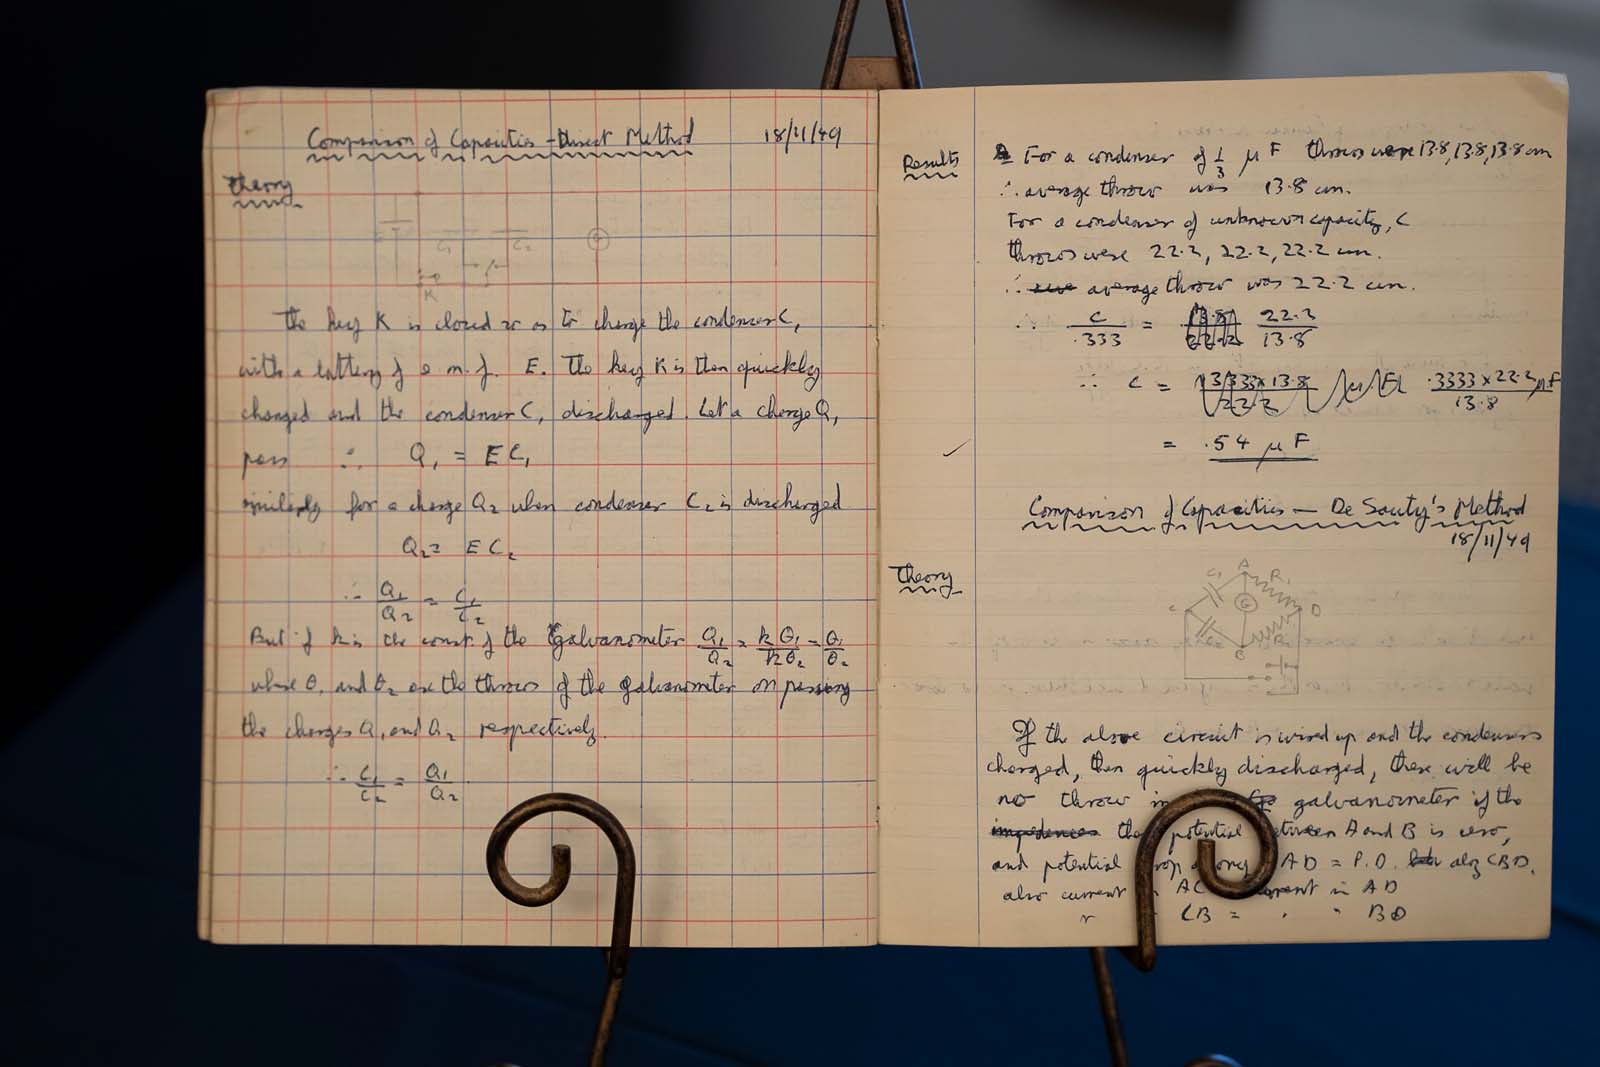 Comparison of Capacities - Direct Method 18/11/49
Theory
E C₁ C₂ G
K
The key K is closed so as to charge the condenser C,
with a battery of e.m.f. E. The key K is then quickly
changed and the condenser C, discharged. Let a charge Q,
pass ∴ Q₁ = EC₁
similarly for a charge Q₂ when condenser C₂ is discharged
Q₂ = EC₂
∴ Q₁/Q₂ = C₁/C₂
But if k is the const. of the galvanometer Q₁/Q₂ = kθ₁/kθ₂ = θ₁/θ₂
where θ, and θ₂ are the throws of the galvanometer on passing
the charges Q, and Q₂ respectively.
∴ C₁/C₂ = Q₁/Q₂
Results
For a condenser of 1/3 μF throws were 13.8, 13.8, 13.8 cm
∴ average throw was 13.8 cm.
For a condenser of unknown capacity, C
throws were 22.2, 22.2, 22.2 cm.
∴ average throw was 22.2 cm.
∴ C/.333 = 13.8/22.2 22.2/13.8
∴ C = .3333 x 13.8/22.2 μF .3333 x 22.2/13.8 μF
= .54 μF
Comparison of Capacities - De Sauty's Method
18/11/49
Theory
C₁ A R₁
C G D
C₂ B R₂
If the above circuit is wired up and the condensers
charged, then quickly discharged, there will be
no throw in galvanometer if the
impedances the potential between A and B is zero,
and potential drop along AD = P.D. along CBD.
also current in AC current in AD
" CB = " " BD